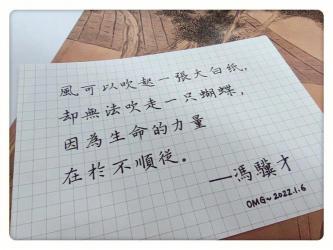 風可以吹起一張大白紙，
却無法吹走一只蝴蝶，
因為生命的力量
在於不順從。
—馮驥才
OMG~2022.1.6